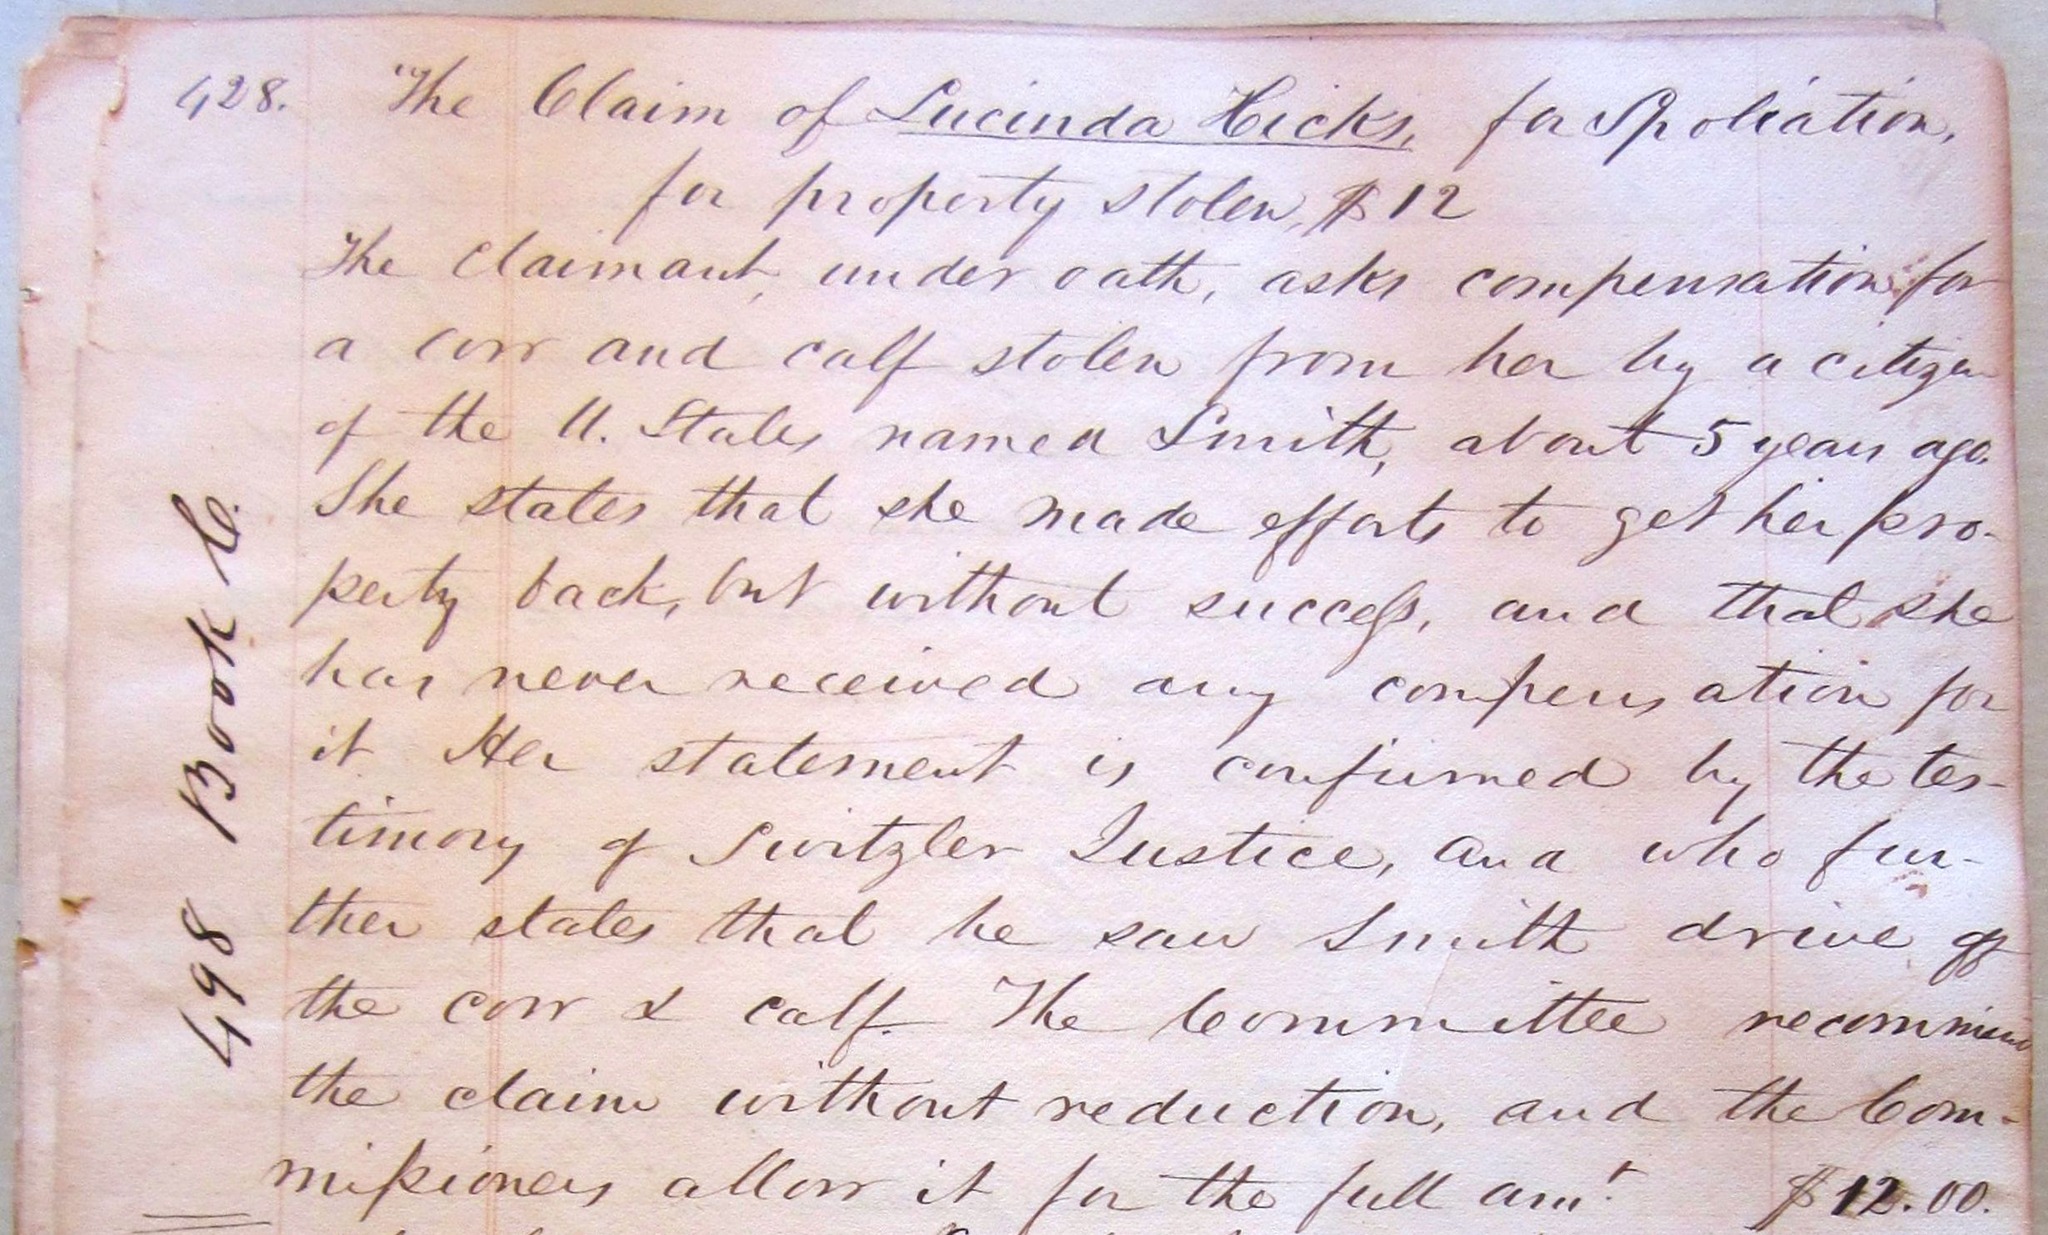 428. The Claim of Lucinda Hicks, for Spoliation,
for property stolen, $12
The Claimant, under oath, asks compensation for
a cow and calf stolen from her by a citizen
of the U. States named Smith, about 5 years ago.
She states that she made efforts to get her pro-
perty back, but without success, and that she
has never received any compensation for
it Her statement is confirmed by the tes-
timony of Switzler Justice, and who fur-
ther states that he saw Smith drive off
the cow & calf. The Committee recommend
the claim without reduction, and the Com-
missioners allow it for the full amt. $12.00.
498 Book C.